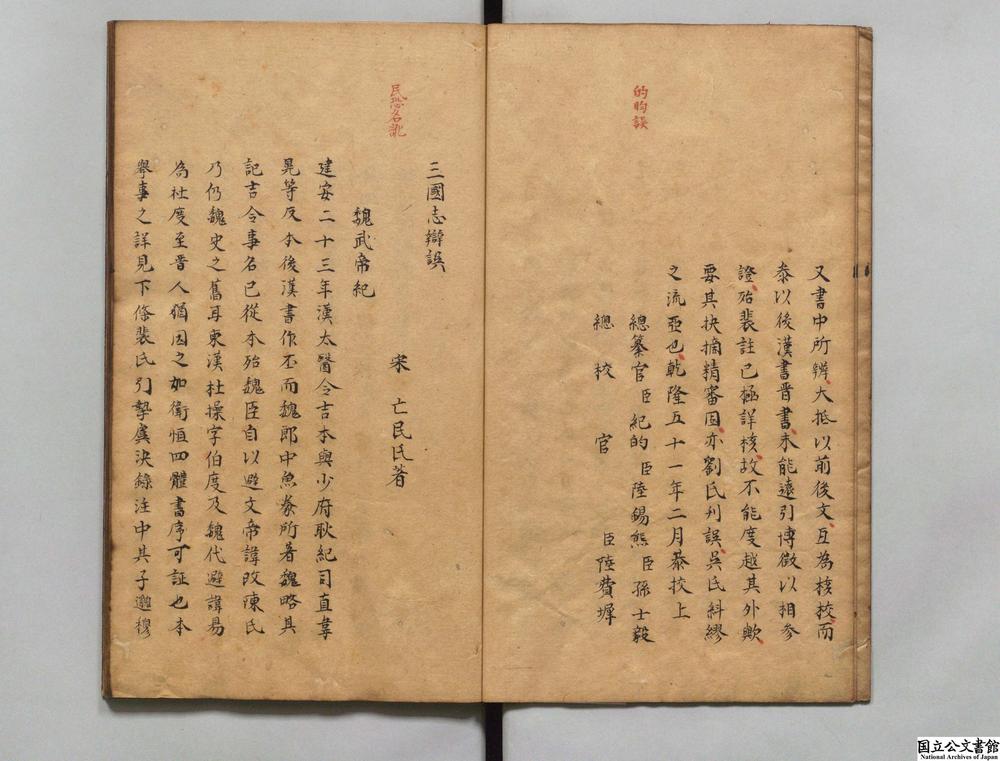 的昀誤
又書中所辨大抵以前後文互為核挍而
泰以後漢書晋書未能遠引博徵以相参
證殆裴註已極詳核故不能度越其外歟
要其抉摘精審固亦劉氏刋誤吳氏糾繆
之流亞也乾隆五十一年二月恭挍上
總纂官臣紀的臣陸錫熊臣孫士毅
總校官臣陸費墀
民恐名訛
三國志辯誤
宋亡民氏著
魏武帝紀
建安二十三年漢太醫令吉本與少府耿紀司直韋
晃等反本後漢書作丕而魏郎中魚豢所著魏略其
記吉令事名已從本殆魏臣自以避文帝諱改陳氏
乃仍魏史之舊耳東漢杜操字伯度及魏代避諱易
為杜度至晋人猶因之如衛恒四體書序可証也本
舉事之詳見下條裴氏引摯虞決錄注中其子邈穆
国立公文書館
National Archives of Japan